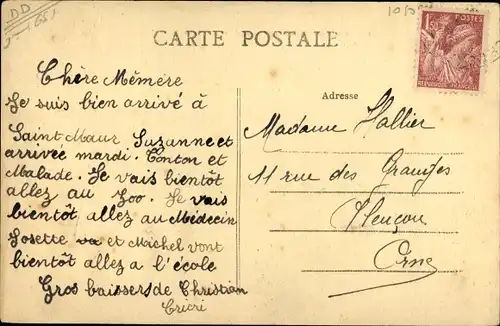 DD
10/5
1F50 POSTES
REPUBLIQUE FRANÇAISE
CARTE POSTALE
Chère Mémère
Je suis bien arrivé à
Saint Maur. Suzanne et
arrivée mardi. Tonton et
Malade. Je vais bientôt
allez au Zoo. Je vais
bientôt allez au Médecin
Josette va et Michel vont
bientôt allez a l'école
Gros baissers de Christian
Cricri
Adresse
Madame Hallier
11 rue des Granges
Alençon
Orne